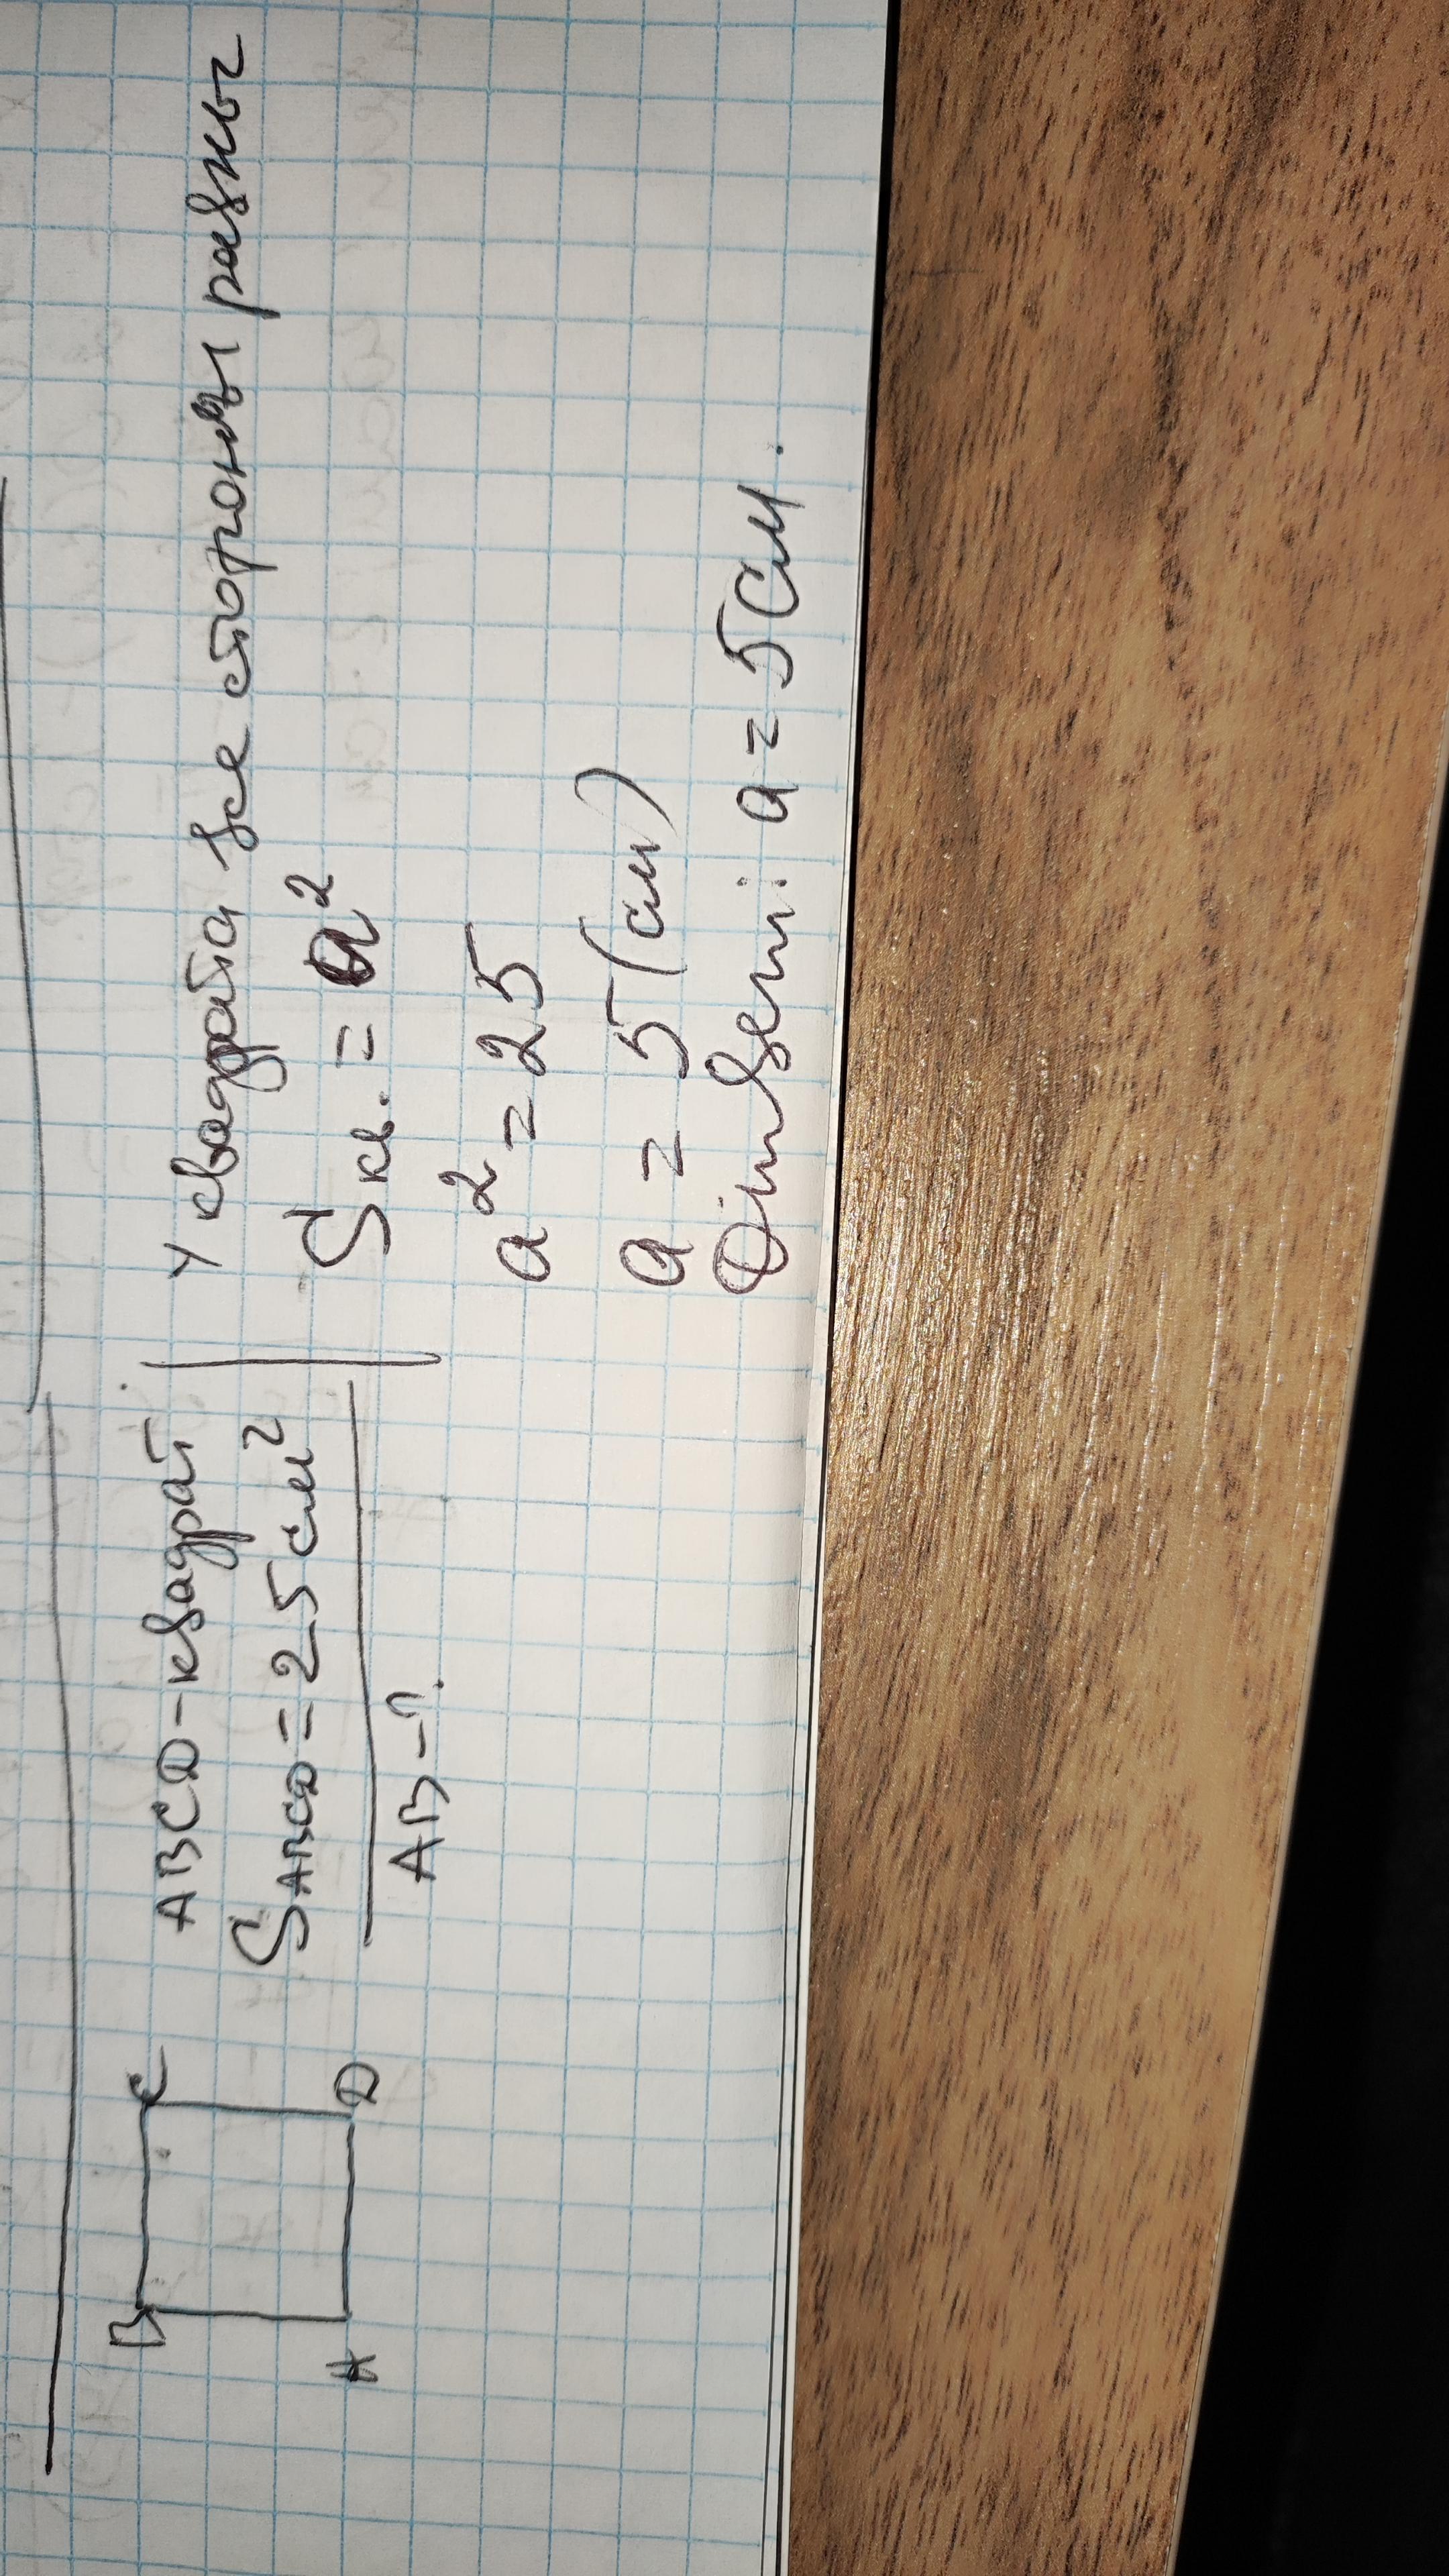 B C
A D
ABCD-квадрат
SABCD=25см²
AB-?
У квадрата все стороны равны
Sкв.=a²
a²=25
a=5(см)
Ответ: a=5см.